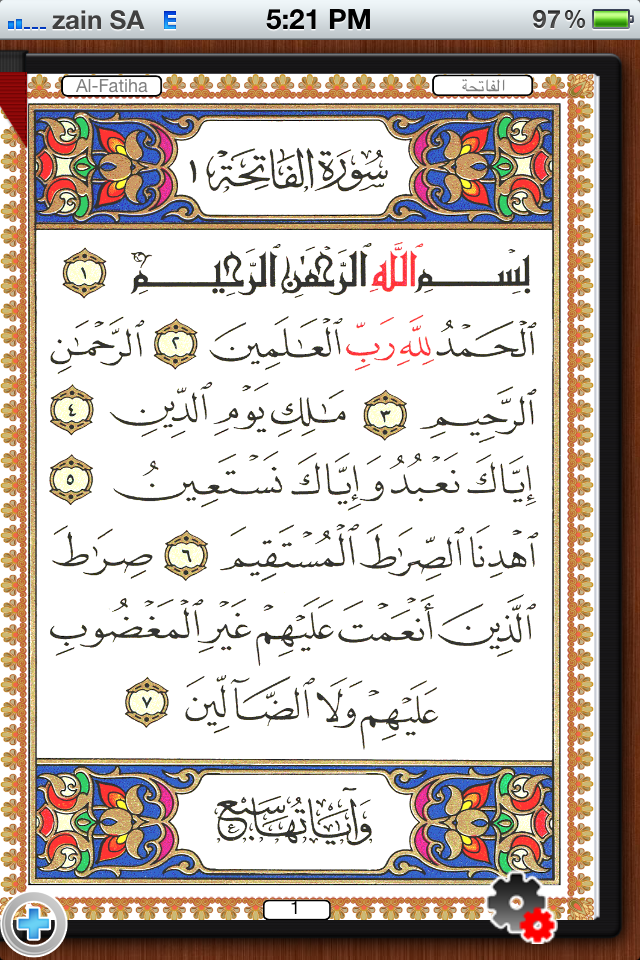 zain SA E 5:21 PM 97%
Al-Fatiha الفاتحة
سُورَةُ الفَاتِحَةِ ١
بِسْمِ ٱللَّهِ ٱلرَّحْمَٰنِ ٱلرَّحِيمِ ١
ٱلْحَمْدُ لِلَّهِ رَبِّ ٱلْعَٰلَمِينَ ٢ ٱلرَّحْمَٰنِ
ٱلرَّحِيمِ ٣ مَٰلِكِ يَوْمِ ٱلدِّينِ ٤
إِيَّاكَ نَعْبُدُ وَإِيَّاكَ نَسْتَعِينُ ٥
ٱهْدِنَا ٱلصِّرَٰطَ ٱلْمُسْتَقِيمَ ٦ صِرَٰطَ
ٱلَّذِينَ أَنْعَمْتَ عَلَيْهِمْ غَيْرِ ٱلْمَغْضُوبِ
عَلَيْهِمْ وَلَا ٱلضَّآلِّينَ ٧
وَآيَاتُهَا سَبْعٌ
1